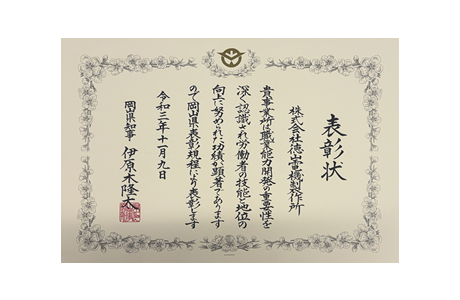 表彰状
株式会社徳山電機製作所
貴事業所は職業能力開発の重要性を
深く認識され労働者の技能と地位の
向上に努められた功績が顕著であります
ので岡山県表彰規程により表彰します
令和三年十一月九日
岡山県知事 伊原木隆太